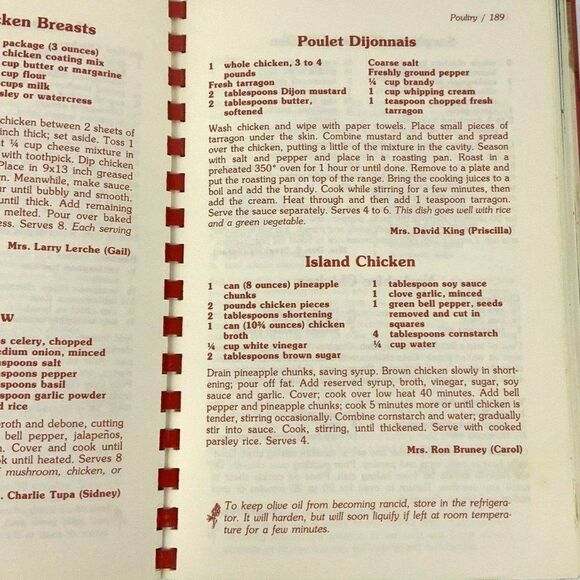 ken Breasts
package (3 ounces)
chicken coating mix
cup butter or margarine
cup flour
cups milk
sley or watercress
chicken between 2 sheets of
inch thick; set aside. Toss 1
t ¼ cup cheese mixture in
with toothpick. Dip chicken
Place in 9x13 inch greased
n. Meanwhile, make sauce.
ur until bubbly and smooth.
until thick. Add remaining
melted. Pour over baked
ess. Serves 8. Each serving
Mrs. Larry Lerche (Gail)
w
s celery, chopped
edium onion, minced
spoons salt
spoons pepper
spoons basil
spoon garlic powder
d rice
roth and debone, cutting
bell pepper, jalapeños,
n. Cover and cook until
ok until heated. Serves 8
f mushroom, chicken, or
. Charlie Tupa (Sidney)
Poultry / 189
Poulet Dijonnais
1 whole chicken, 3 to 4
pounds
Fresh tarragon
2 tablespoons Dijon mustard
2 tablespoons butter,
softened
Coarse salt
Freshly ground pepper
¼ cup brandy
1 cup whipping cream
1 teaspoon chopped fresh
tarragon
Wash chicken and wipe with paper towels. Place small pieces of
tarragon under the skin. Combine mustard and butter and spread
over the chicken, putting a little of the mixture in the cavity. Season
with salt and pepper and place in a roasting pan. Roast in a
preheated 350° oven for 1 hour or until done. Remove to a plate and
put the roasting pan on top of the range. Bring the cooking juices to a
boil and add the brandy. Cook while stirring for a few minutes, then
add the cream. Heat through and then add 1 teaspoon tarragon.
Serve the sauce separately. Serves 4 to 6. This dish goes well with rice
and a green vegetable.
Mrs. David King (Priscilla)
Island Chicken
1 can (8 ounces) pineapple
chunks
2 pounds chicken pieces
2 tablespoons shortening
1 can (10¾ ounces) chicken
broth
¼ cup white vinegar
2 tablespoons brown sugar
1 tablespoon soy sauce
1 clove garlic, minced
1 green bell pepper, seeds
removed and cut in
squares
4 tablespoons cornstarch
¼ cup water
Drain pineapple chunks, saving syrup. Brown chicken slowly in short-
ening; pour off fat. Add reserved syrup, broth, vinegar, sugar, soy
sauce and garlic. Cover; cook over low heat 40 minutes. Add bell
pepper and pineapple chunks; cook 5 minutes more or until chicken is
tender, stirring occasionally. Combine cornstarch and water; gradually
stir into sauce. Cook, stirring, until thickened. Serve with cooked
parsley rice. Serves 4.
Mrs. Ron Bruney (Carol)
To keep olive oil from becoming rancid, store in the refrigera-
tor. It will harden, but will soon liquify if left at room tempera-
ture for a few minutes.